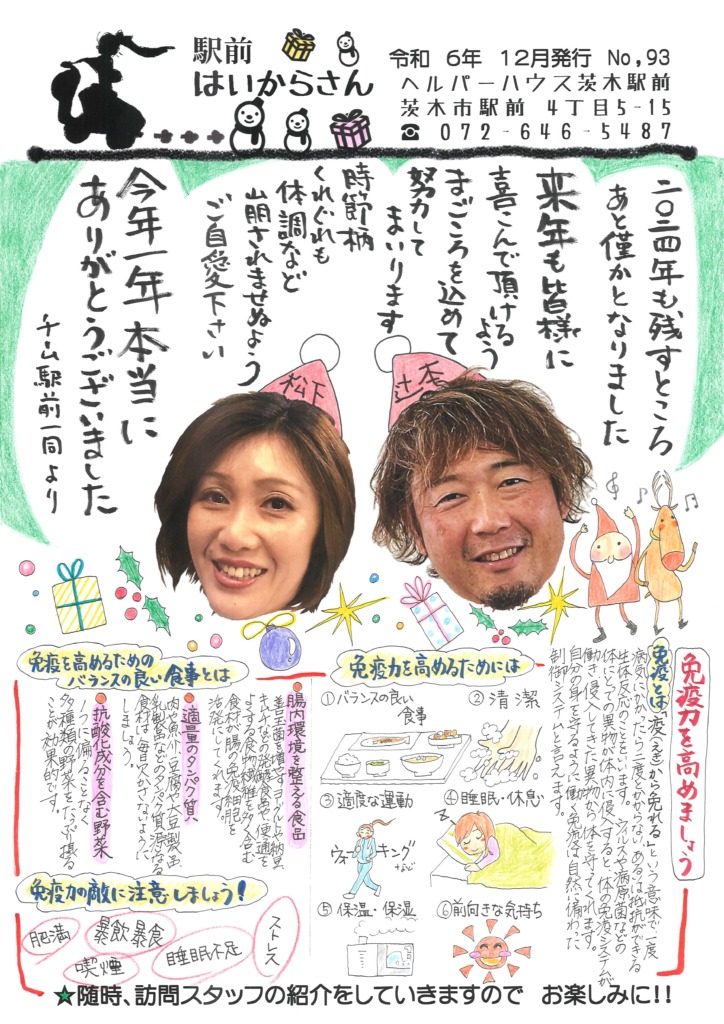 駅前
はいからさん
令和 6年 12月発行 No,93
ヘルパーハウス茨木駅前
茨木市駅前 4丁目5-15
☎ 072-646-5487
二〇二四年も残すところ
あと僅かとなりました
来年も皆様に
喜こんで頂けるよう
まごころを込めて
努力して
まいります
時節柄
くれぐれも
体調など
崩されませぬよう
ご自愛下さい
今年一年本当に
ありがとうございました
チーム駅前一同より
松下
辻本
免疫力を高めましょう
免疫とは「疫(えき)から免れる」という意味で一度
病気にかかったら二度とかからない、あるいは抵抗ができる
生体反応のことをいいます。ウィルスや病原菌などの
体にとっての異物が体内に侵入すると、体の免疫システムが
働き、侵入してきた異物から体を守ってくれます。
自分の身を守るように働く免疫は自然に備わった
制御システムと言えます。
免疫力を高めるためには
①バランスの良い
食事
②清潔
③適度な運動
ウォーキング
など
④睡眠・休息
⑤保温・保湿
⑥前向きな気持ち
免疫を高めるための
バランスの良い食事とは
腸内環境を整える食品
善玉菌を増やすヨーグルトや納豆、
キムチなどの発酵食品や便通を
よくする食物繊維を多く含む
食材が腸の免疫細胞を
活発にしてくれます。
適量のタンパク質
肉や魚介、豆腐や大豆製品、
乳製品などのタンパク質源になる
食材は毎日欠かさないように
しましょう。
抗酸化成分を含む野菜
1つに偏ることなく、
多種類の野菜をたっぷり摂る
ことが効果的です。
免疫力の敵に注意しましょう!
肥満
暴飲暴食
喫煙
睡眠不足
ストレス
★随時、訪問スタッフの紹介をしていきますので お楽しみに!!